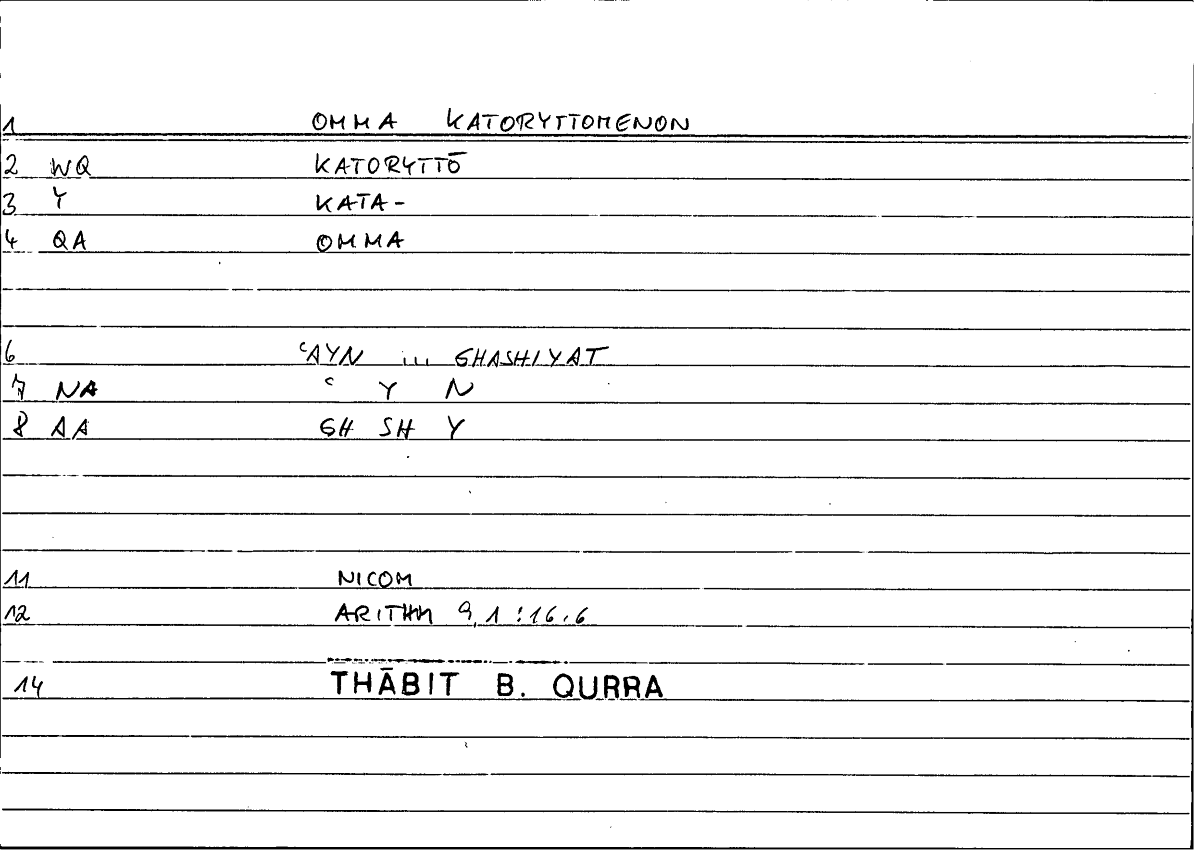 1 OMMA KATORYTTOMENON
2 WQ KATORYTTŌ
3 Y KATA-
4 QA OMMA
6 ʿAYN ... GHASHIYAT
7 NA ʿ Y N
8 AA GH SH Y
11 NICOM
12 ARITHM 9,1:16.6
14 THĀBIT B. QURRA